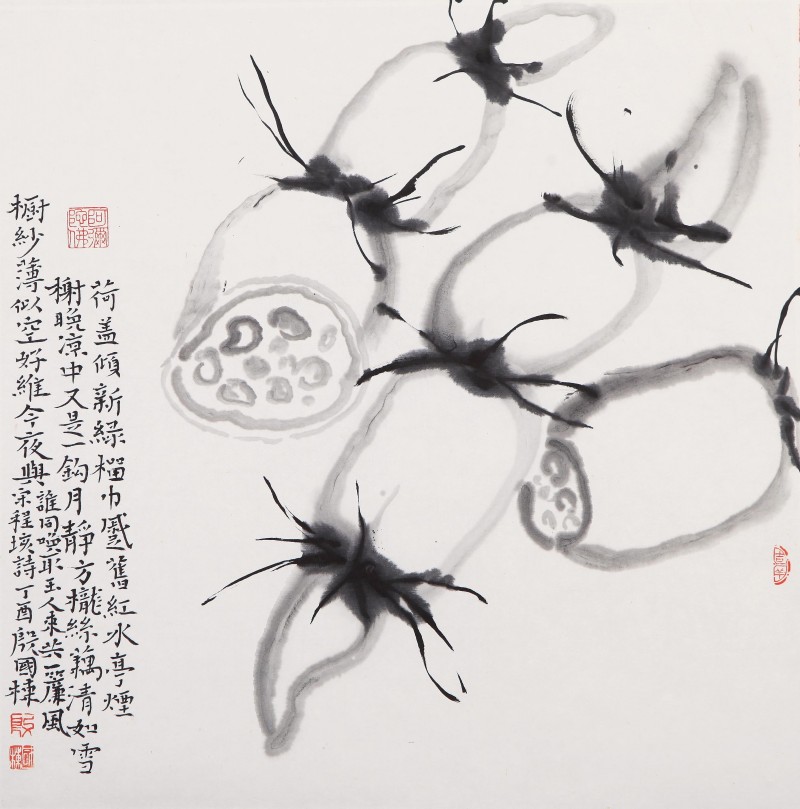 阿彌陀佛
荷蓋傾新綠橊巾蹙舊紅水亭煙
榭晚涼中又是一鈎月靜方櫳絲藕清如雪
櫥紗薄似空好維今夜與
誰同喚取玉人來共一簾風
宋程垓詩丁酉殷國棟
殷